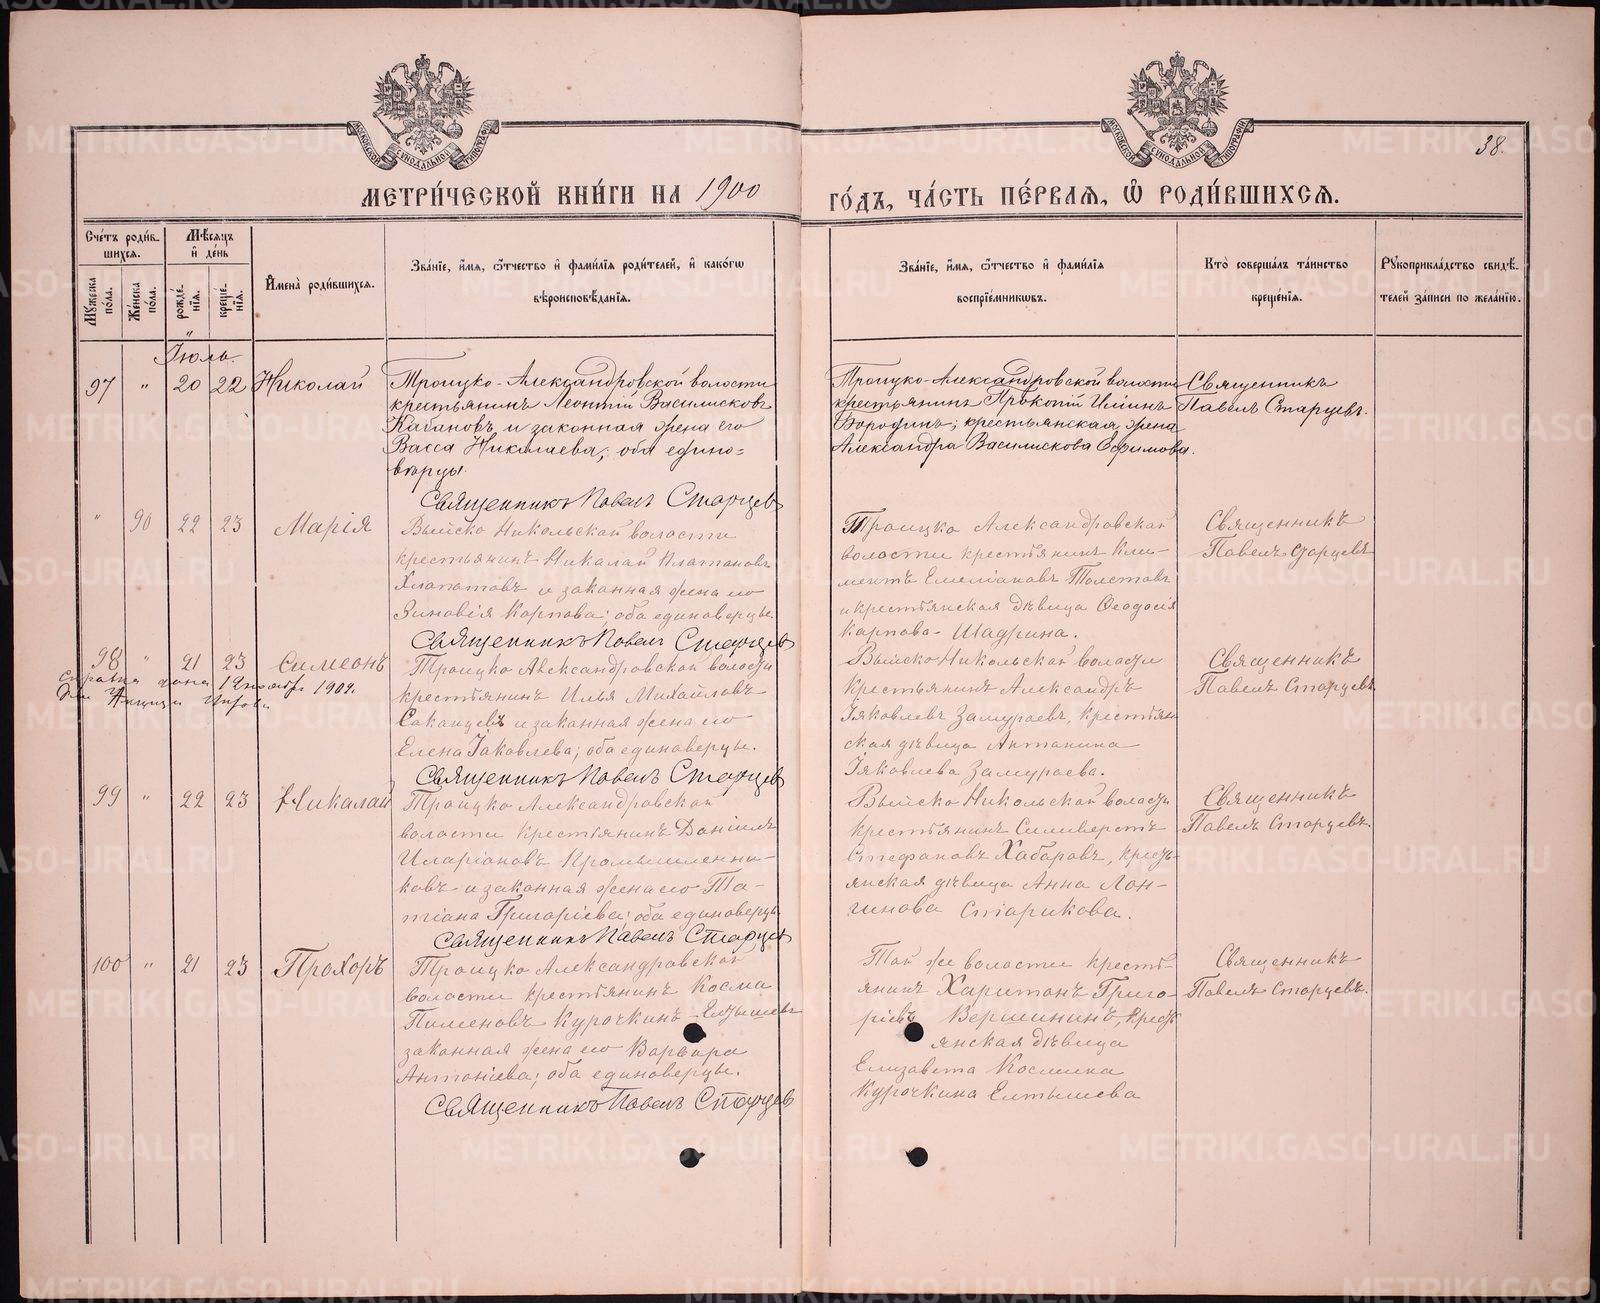 МОСКОВСКОЙ СѴНОДАЛЬНОЙ ТИПОГРАФІИ
МОСКОВСКОЙ СѴНОДАЛЬНОЙ ТИПОГРАФІИ
38.
МЕТРИ́ЧЕСКОЙ КНИ́ГИ НА 1900
ГО́ДЪ, ЧА́СТЬ ПЕ́РВАЯ, Ѡ҆ РОДИ́ВШИХСЯ.
Сче́тъ роди́в-
шихся.
Мꙋжеска пола.
Же́нска по́ла.
Мѣ́сяцъ
и҆ де́нь
рожде́-
нїя.
креще́-
нїя.
И҆мена̀ роди́вшихся.
Зва́нїе, и҆́мя, ѻ҆́тчество и҆ фами́лїѧ роди́телей, и҆ како́гѡ
вѣроисповѣ́данїя.
Зва́нїе, и҆́мя, ѻ҆́тчество и҆ фами́лїѧ
воспрїе́мниковъ.
Кто̀ соверша́лъ та́инство
креще́нїя.
Рꙋкоприкла́дство свидѣ́-
телей за́писи по жела́нїю.
Іюль.
97 " 20 22 Николай
Троицко-Александровской волости
крестьянинъ Леонтій Василисковъ
Кабановъ и законная жена его
Васса Николаева; оба едино-
вѣрцы.
Священникъ Павелъ Старцевъ
Троицко-Александровской волости
крестьянинъ Прокопій Ильинъ
Бородинъ; крестьянская жена
Александра Василискова Ефимова.
Священникъ
Павелъ Старцевъ.
" 90 22 23 Марія
Выйско Никольской волости
крестьянинъ Николай Платоновъ
Хлопотовъ и законная жена его
Зиновія Карпова; оба единоверцы.
Священникъ Павелъ Старцевъ
Троицко Александровской
волости крестьянинъ Кли-
ментъ Емеліановъ Толстовъ
и крестьянская дѣвица Ѳеодосія
Карпова Шадрина.
Священникъ
Павелъ Старцевъ
98 " 21 23 Симеонъ
12 ноября 1909.
Троицко Александровской волости
крестьянинъ Илья Михайловъ
и законная жена его
Елена Іаковлева; оба единоверцы.
Священникъ Павелъ Старцевъ
Выйско Никольской волости
крестьянинъ Александръ
Іяковлевъ Замураевъ, крестьян
ская дѣвица Антонина
Іяковлева Замураева.
Священникъ
Павелъ Старцевъ
99 " 22 23 Николай
Троицко Александровской
волости крестьянинъ Даніилъ
Иларіоновъ Кромышленни-
ковъ и законная жена его Та-
тіана Григоріева; оба единоверцы
Священникъ Павелъ Старцевъ
Выйско Никольской волости
крестьянинъ Силиверстъ
Стефановъ Хабаровъ, кресть-
янская дѣвица Анна Лон-
гинова Старикова.
Священникъ
Павелъ Старцевъ.
100 " 21 23 Прохоръ
Троицко Александровской
волости крестьянинъ Косма
Пименовъ Курочкинъ-Елтышевъ
законная жена его Варвара
Антоніева; оба единоверцы.
Священникъ Павелъ Старцевъ
Той же волости кресть-
янинъ Харитонъ Григо-
ріевъ Вершининъ, крест
янская дѣвица
Елизавета Космина
Курочкина Елтышева
Священникъ
Павелъ Старцевъ.
METRIKI.GASO-URAL.RU